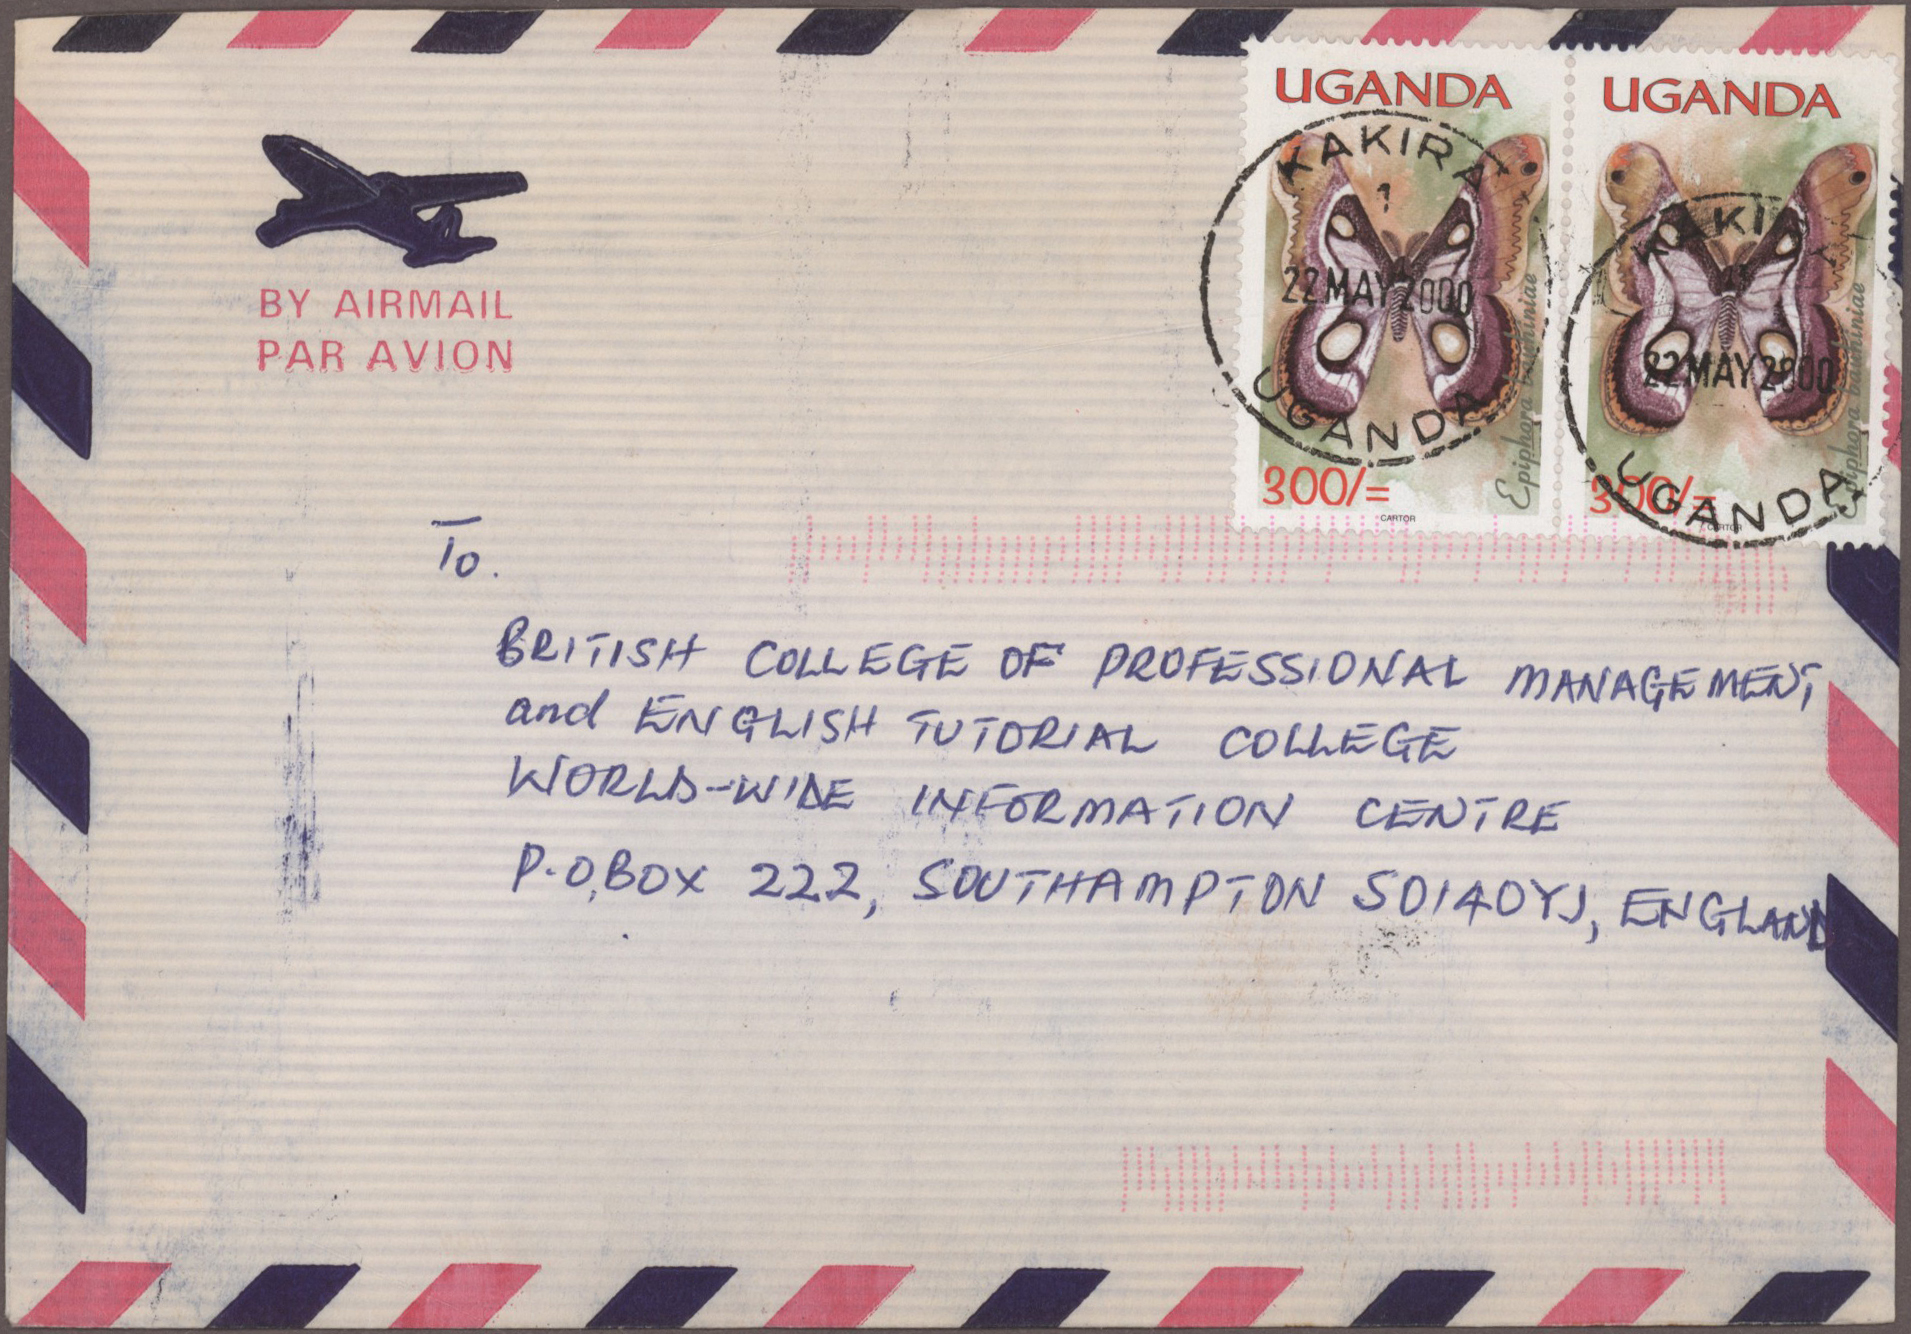 UGANDA
UGANDA
KAKIRA
1
22 MAY 2000
UGANDA
22 MAY 2000
UGANDA
Epiphora bauhiniae
Epiphora bauhiniae
300/=
300/=
CARTOR
CARTOR
BY AIRMAIL
PAR AVION
To.
BRITISH COLLEGE OF PROFESSIONAL MANAGEMENT
and ENGLISH TUTORIAL COLLEGE
WORLD-WIDE INFORMATION CENTRE
P.O.BOX 222, SOUTHAMPTON SO140YJ, ENGLAND